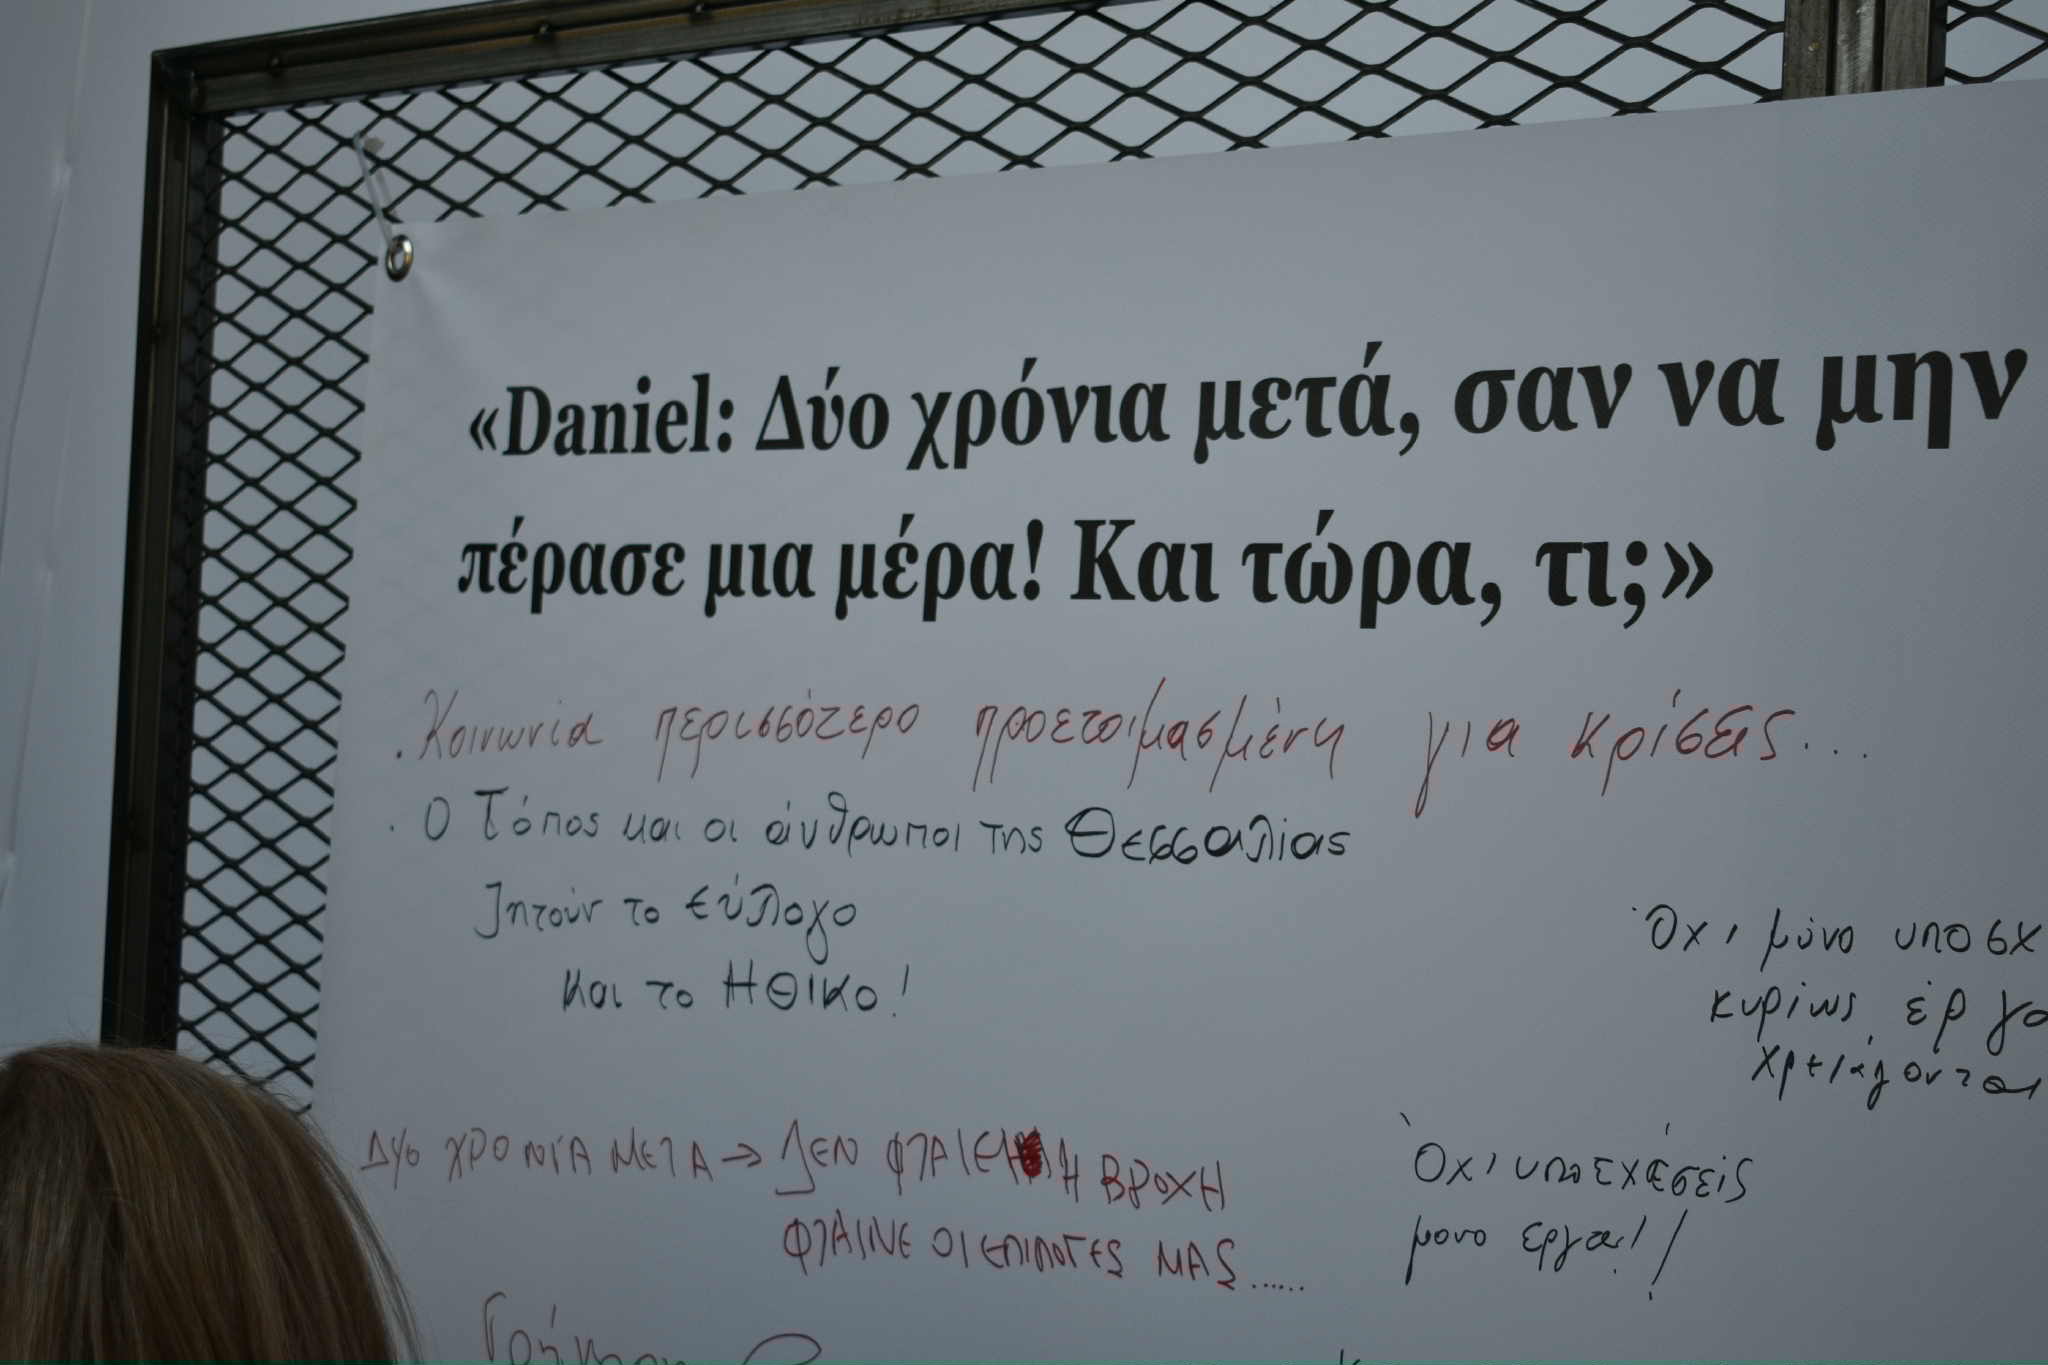 «Daniel: Δύο χρόνια μετά, σαν να μην
πέρασε μια μέρα! Και τώρα, τι;»
. Κοινωνία περισσότερο προετοιμασμένη για κρίσεις...
. Ο Τόπος και οι άνθρωποι της Θεσσαλίας
ζητούν το εύλογο
και το ΗΘΙΚΟ!
Όχι μόνο υποσχ
κυρίως έργα
χρειάζονται
ΔΥΟ ΧΡΟΝΙΑ ΜΕΤΑ → ΔΕΝ ΦΤΑΙΕΙ Η ΒΡΟΧΗ
ΦΤΑΙΝΕ ΟΙ ΕΠΙΛΟΓΕΣ ΜΑΣ......
Όχι υποσχέσεις
μονο εργα!!